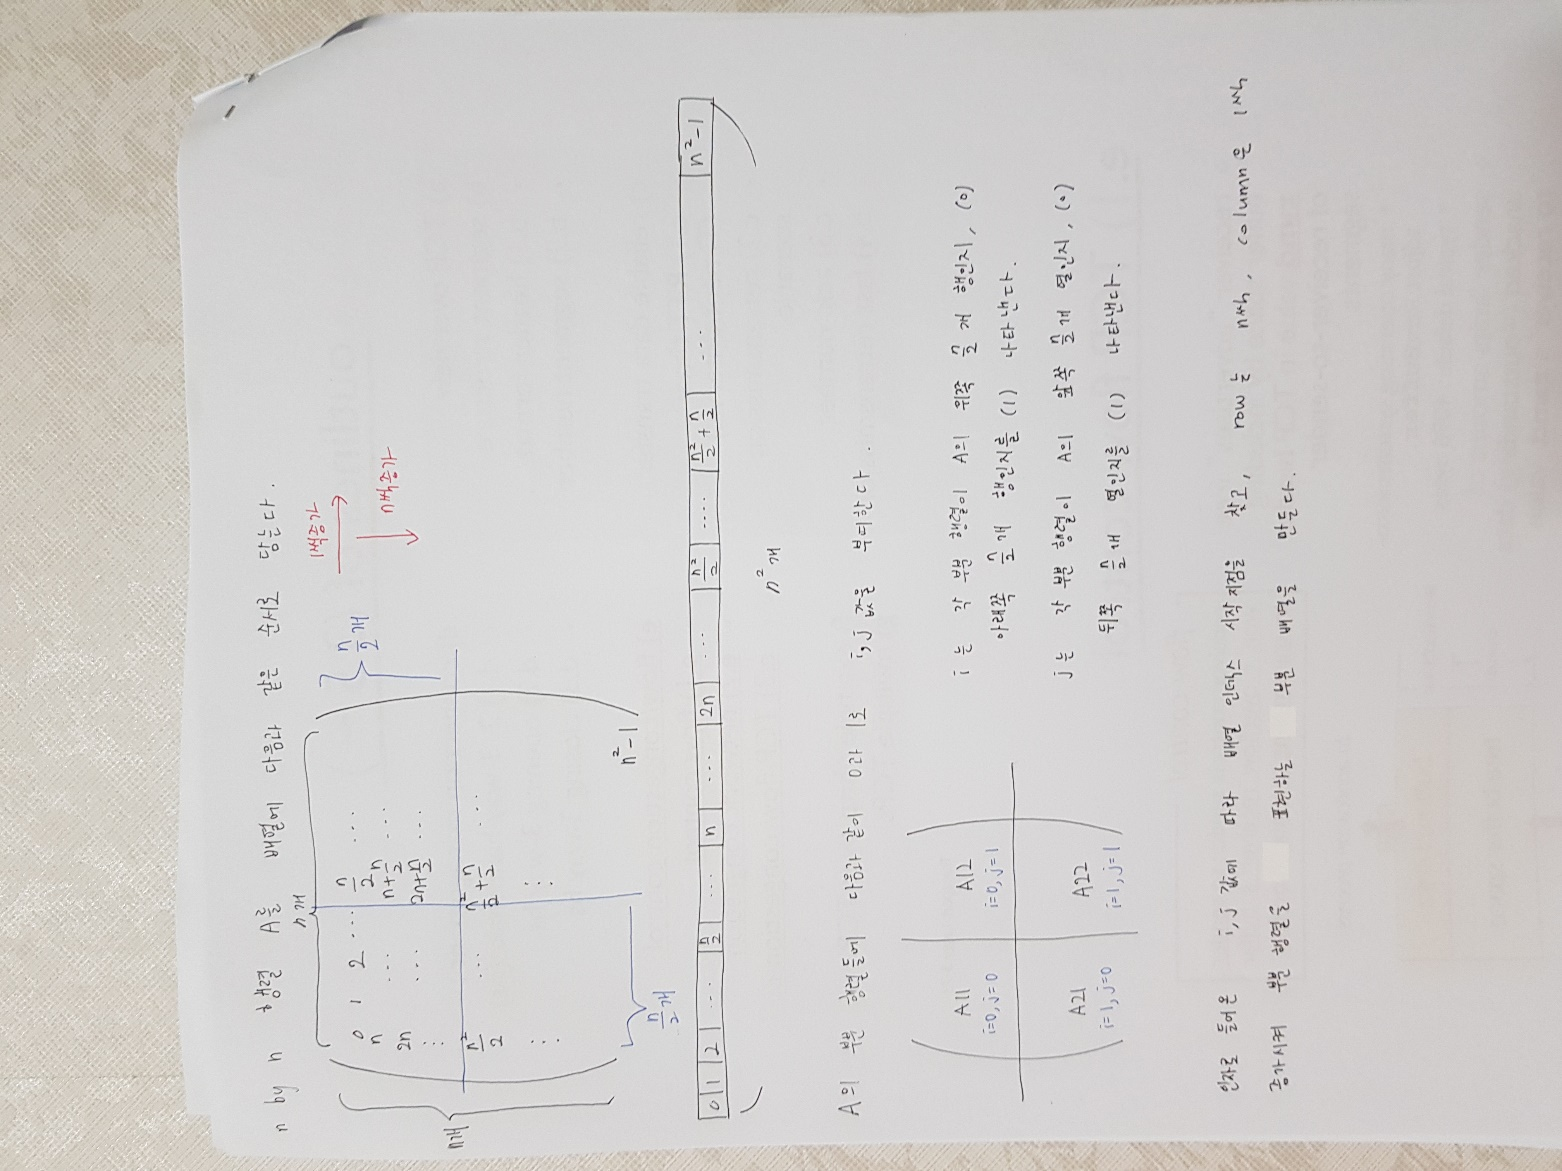 n by n 행렬 A를 배열에 다음과 같은 순서로 담는다.
1씩증가
n씩증가
n개
n/2개
n개
0 1 2 ... n/2 ...
n ... n+n/2 ...
2n ... 2n+n/2 ...
⋮
n²/2 ... n²/2+n/2 ...
⋮ ⋮
n²-1
n/2개
0 1 2 ... n/2 ... n ... 2n ... n²/2 .... n²/2+n/2 ... n²-1
n²개
A의 부분 행렬들에 다음과 같이 0과 1로 i,j 값을 부여한다.
A11 A12
i=0,j=0 i=0,j=1
A21 A22
i=1,j=0 i=1,j=1
i 는 각 부분 행렬이 A의 위쪽 n/2 개 행인지, (0)
아래쪽 n/2 개 행인지를 (1) 나타낸다.
j 는 각 부분 행렬이 A의 앞쪽 n/2 개 열인지, (0)
뒤쪽 n/2 개 열인지를 (1) 나타낸다.
인자로 들어온 i,j 값에 따라 배열 인덱스 시작지점을 찾고, row는 n씩, column은 1씩
증가시켜 부분 행렬을 표현하는 부분 배열을 만든다.